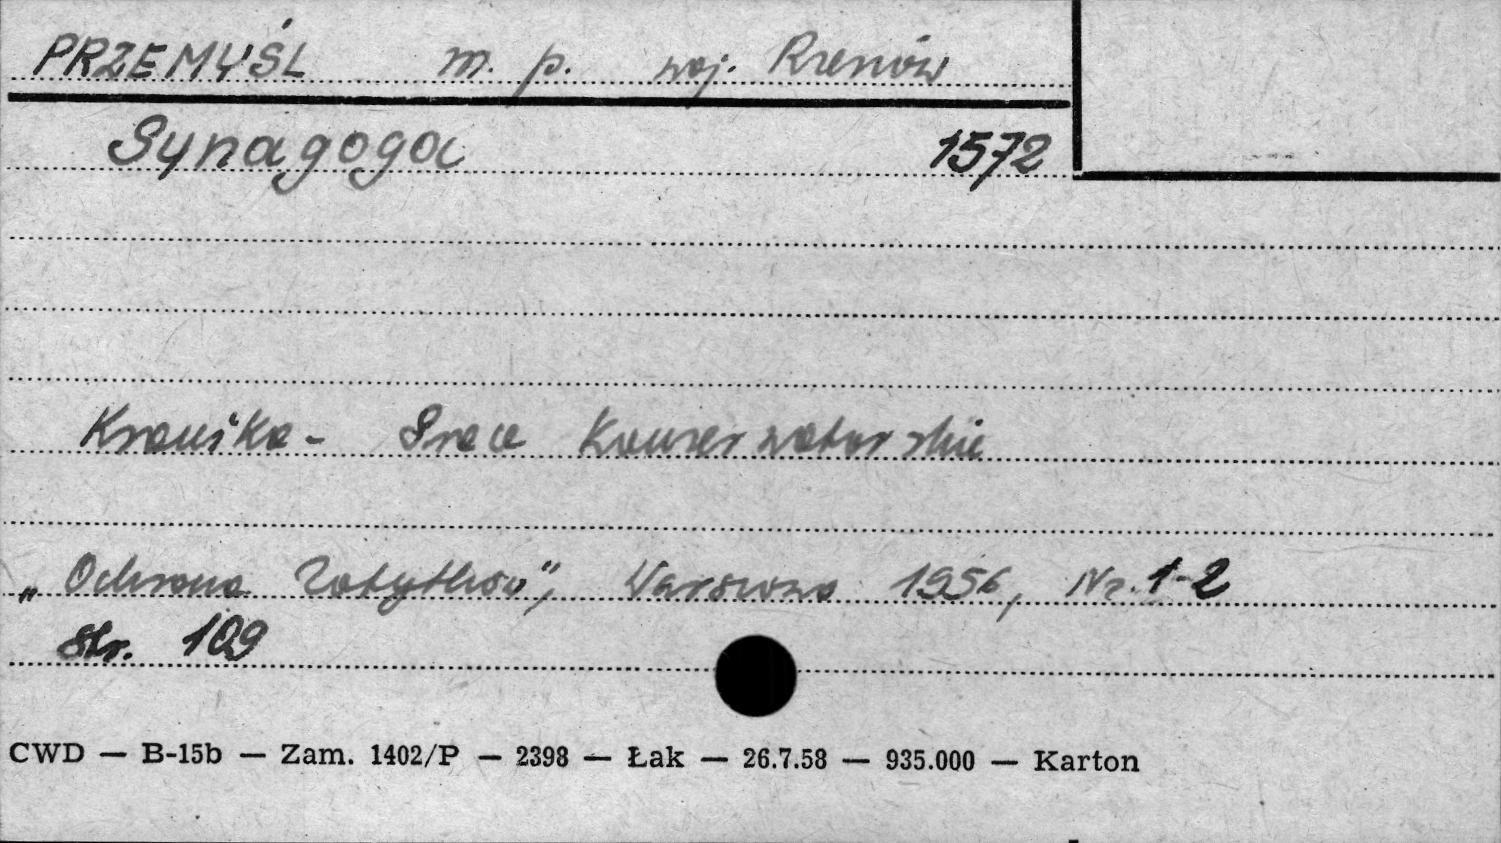 PRZEMYŚL m. p. woj. Rzeszów
Synagoga 1572
Kronika - Prace Konserwatorskie
„Ochrona Zabytków", Warszawa 1956, Nr. 1-2
str. 109
CWD — B-15b — Zam. 1402/P — 2398 — Łak — 26.7.58 — 935.000 — Karton